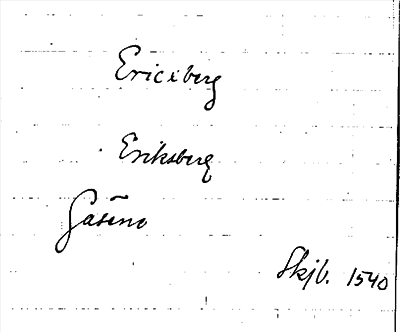 Ericxberg
Eriksberg
Gasene
Skjb. 1540